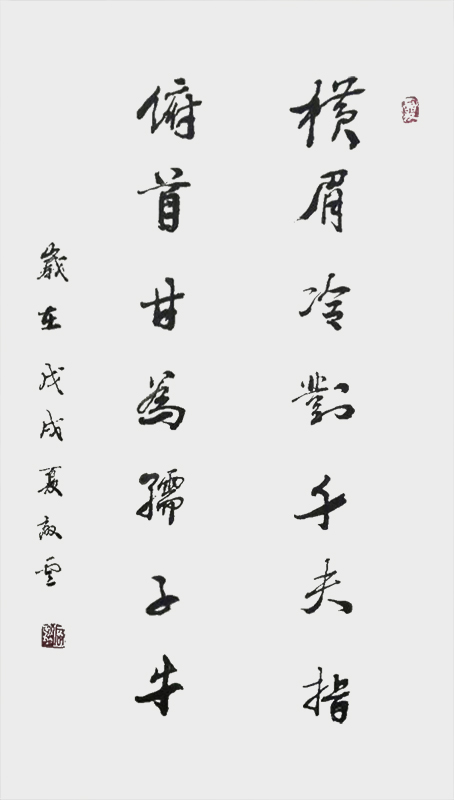 橫眉冷對千夫指
俯首甘為孺子牛
歲在戊戌夏